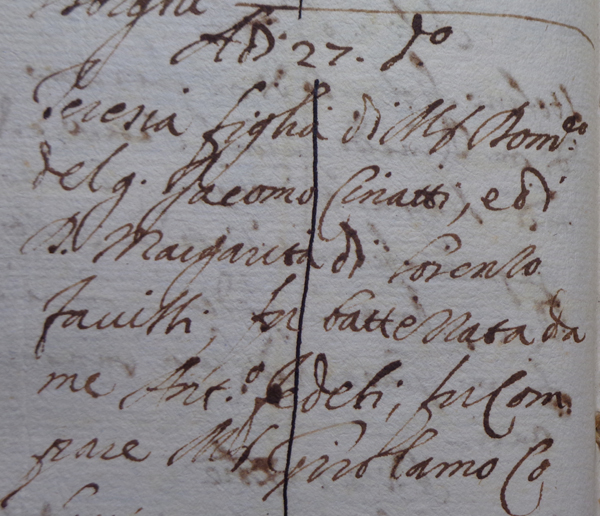 Adi 27. do
Teresia figlia di Mf Domco
del q. Jacomo Cinatti, e di
D. Margarita di Lorenzo
Fauilli, fu battezzata da
me Ant.o Fedeli, fu Com
pare Mf Girolamo Co